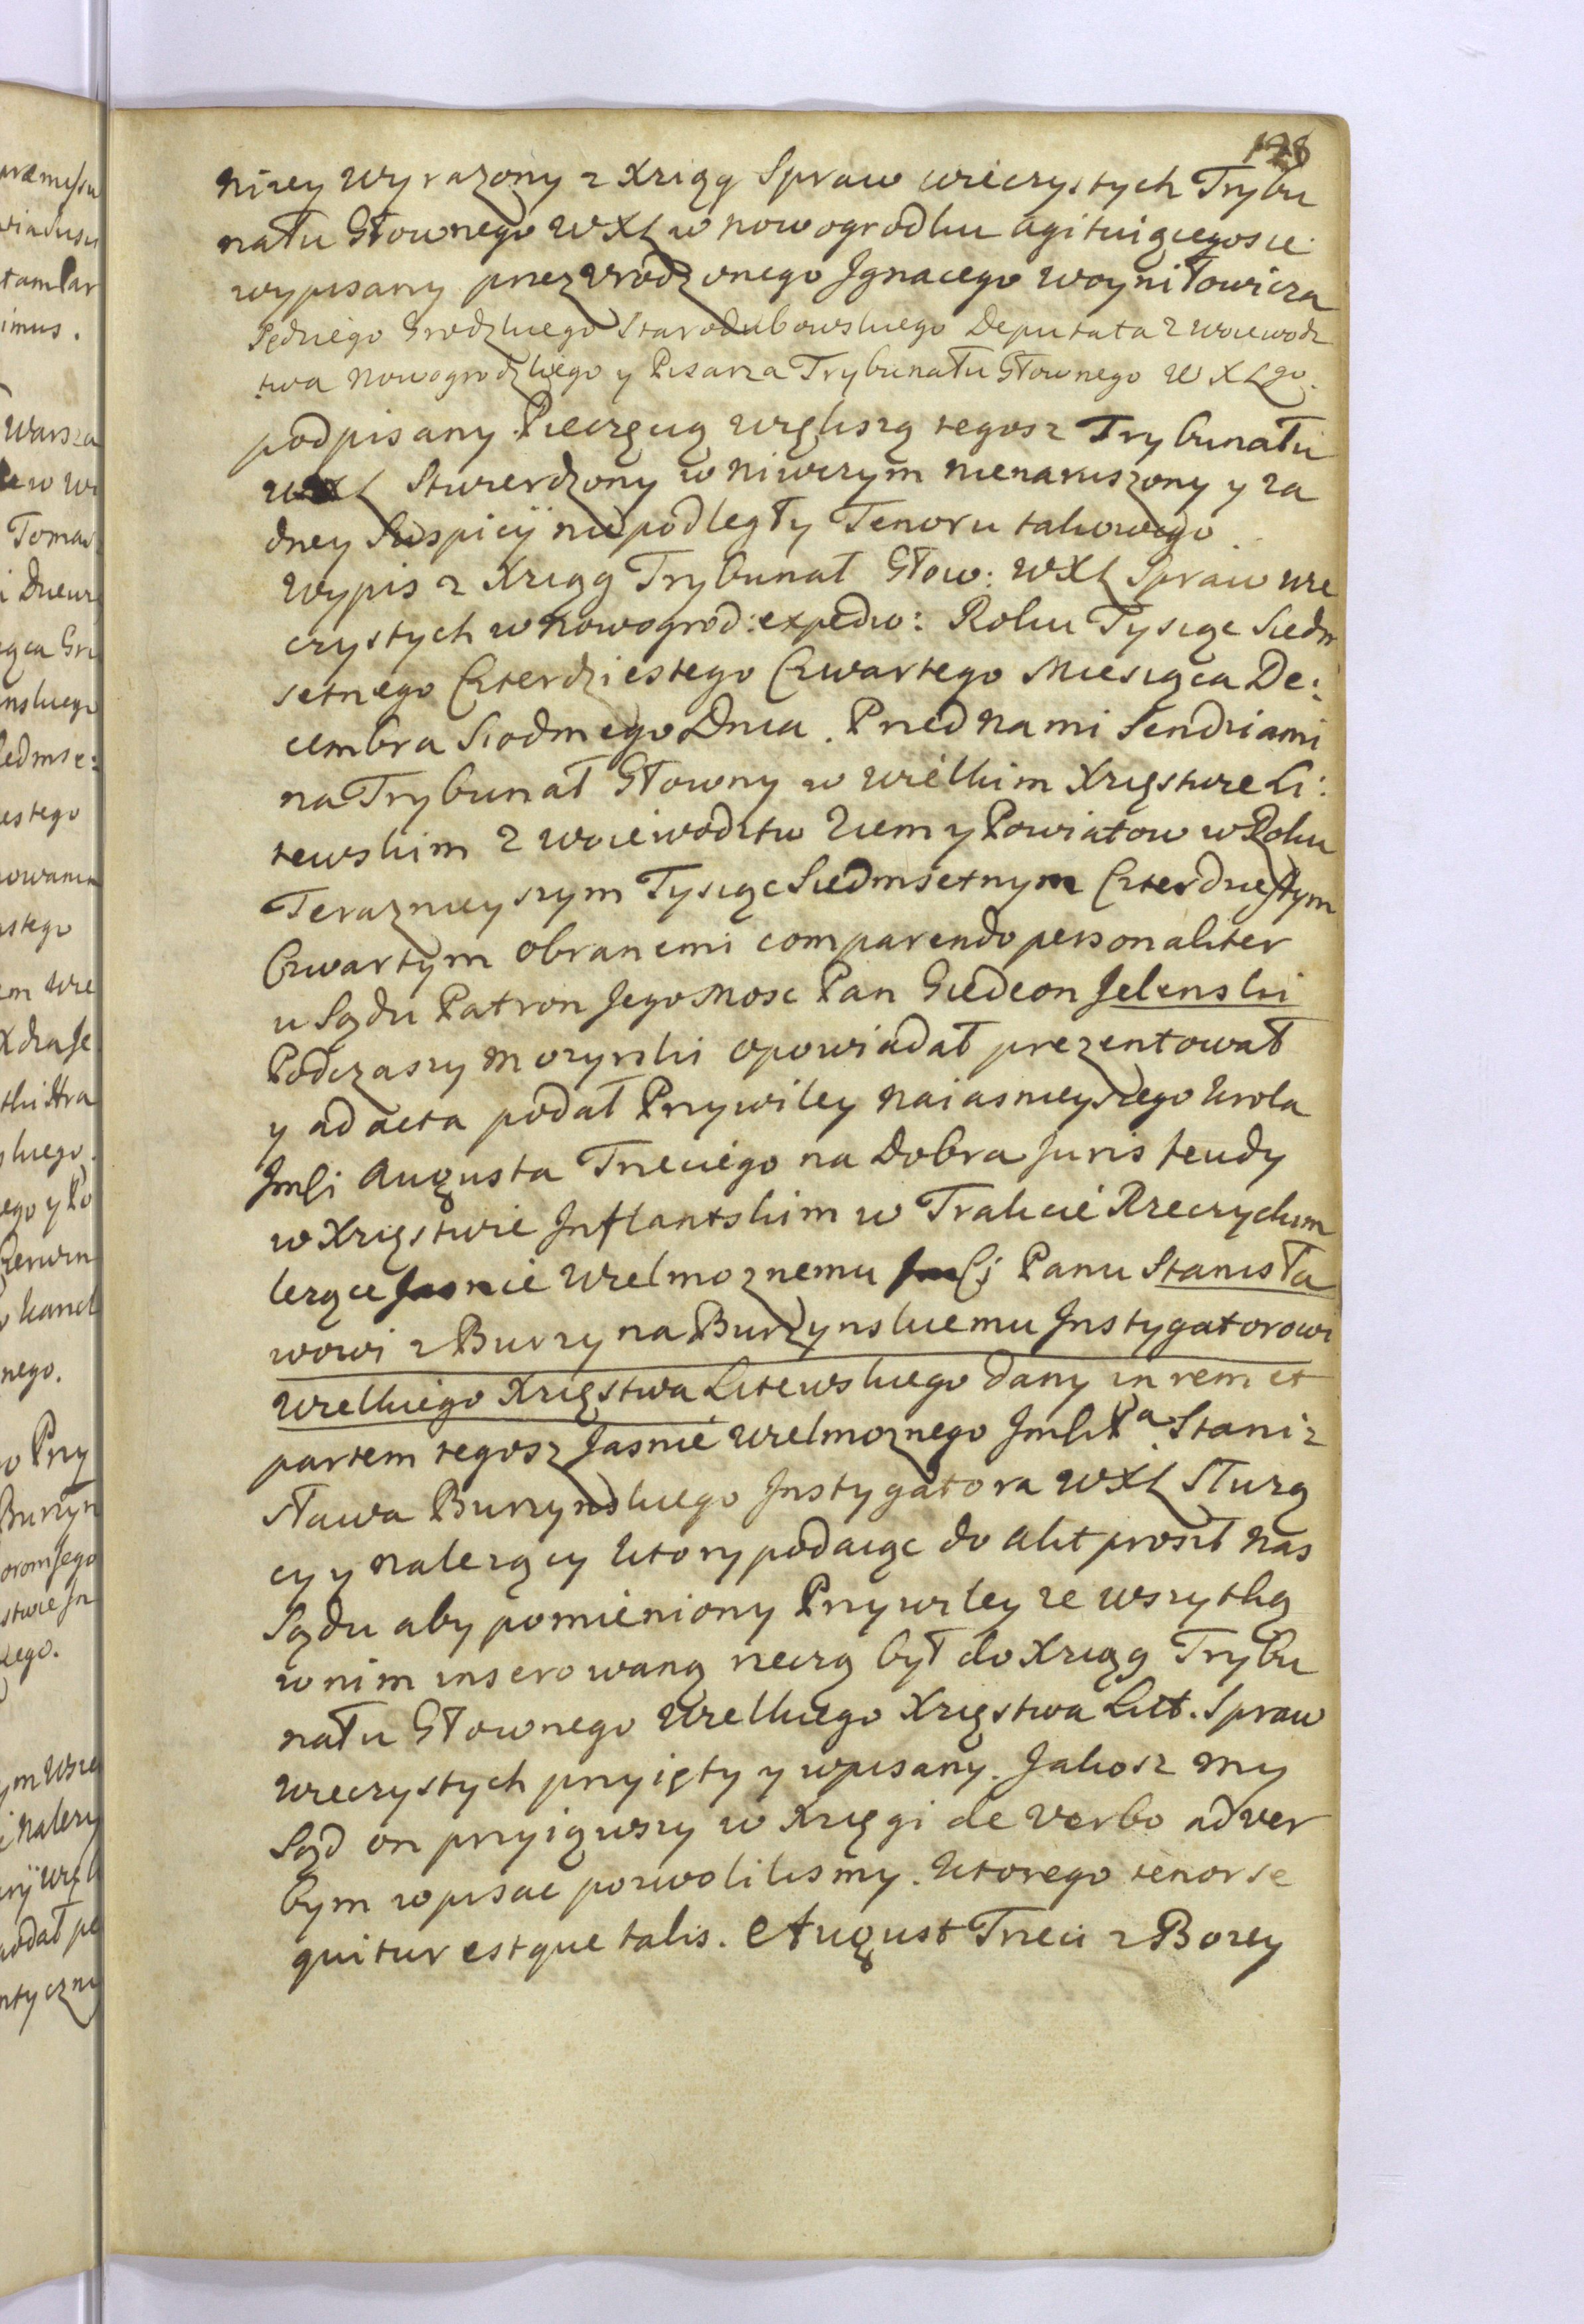 128
nizey wyrazony z Xziąg Spraw wieczystych Trybu
nału Głownego WXL w nowogrodku agituiącegosie
wypisany przez vrodzonego Jgnacego woyniłowicza
Sędziego Grodzkiego Starodubowskiego Deputata z woiewodz
twa nowogrodzkiego y Pisarza Trybunału Głownego W X L go.
podpisany Pieczęcią większą tegosz Trybunału
WXL Stwierdzony w niwczym nienaruszony y za
dney Suspicij niepodległy Tenoru takowego
Wypis z Xziąg Trybunał Głow: WXL Spraw wie
czystych w nowogrod: expedio: Roku Tysiąc Siedm
setnego Czterdziestego Czwartego Miesiąca De:
cembra Siodmego Dnia. Przed nami Sendziami
na Trybunał Głowny w wielkim Xięstwie Li:
tewskim z woiewodztw Ziem y Powiatow w Roku
Teraznieyszym Tysiąc Siedmsetnym Czterdziestym
Czwartym obranemi comparendo personaliter
u Sądu Patron Jegomosc Pan Giedeon Jelenski
Podczaszy mozyrski opowiadał prezentował
y ad acta podał Przywiley naiasnieyszego krola
Jmści Augusta Trzeciego na Dobra Juris feudy
w Xięstwie Jnflantskim w Trakcie Rzeczyckim
lezące Jasnie wielmoznemu Jmści Panu Stanisła
wowi z Burzyna Burzynskiemu Jnstygatorowi
wielkiego Xięstwa Litewskiego dany in rem et
partem tegosz Jasnie wielmoznego Jmści Pa Stani z
sława Burzynskiego Jnstygatora WXL Słuzą
cy y nalezący ktory podaiąc do akt prosił nas
Sądu aby pomieniony Przywiley ze wszytką
w nim inserowaną rzeczą był do Xziąg Trybu
nału Głownego wielkiego Xięstwa Litt. Spraw
wieczystych przyięty y wpisany. Jakosz my
Sąd on przyiąwszy w Xięgi de verbo ad ver
bym wpisać pozwolilismy. ktorego tenor se
quitur estque talis. August Trzeci z Bozey